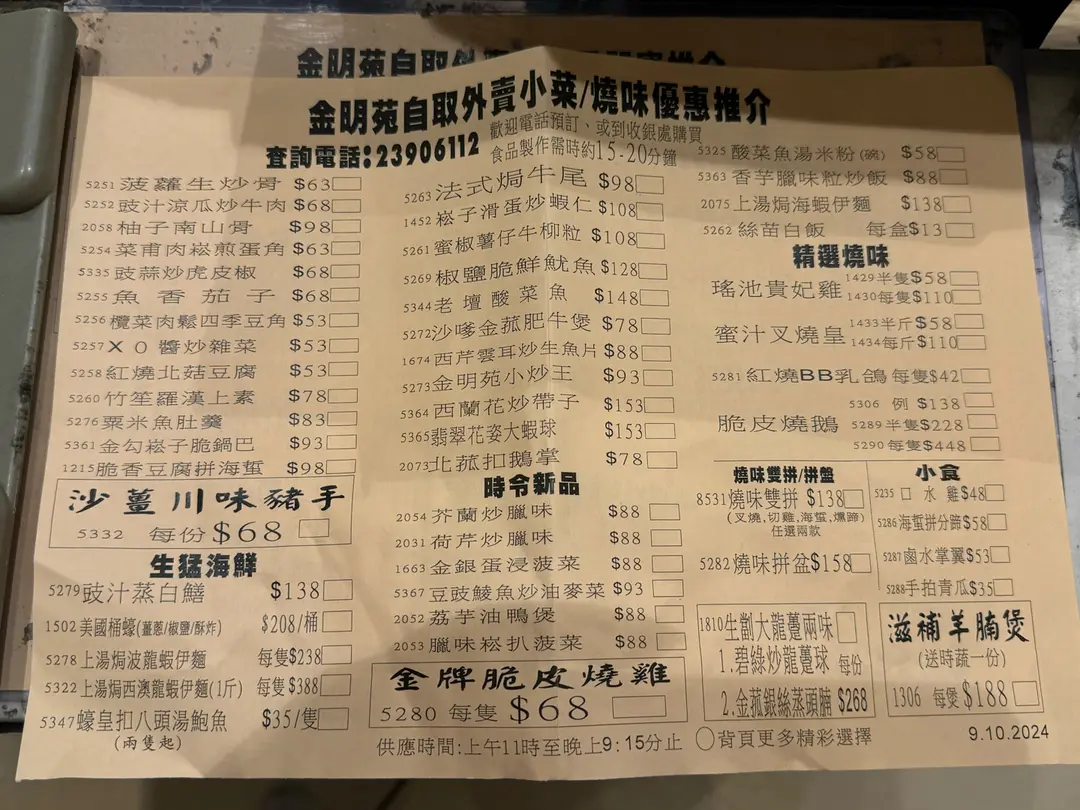 金明苑自取外賣小菜/燒味優惠推介
查詢電話:23906112
歡迎電話預訂、或到收銀處購買
食品製作需時約15-20分鐘
5251 菠蘿生炒骨 $63
5252 豉汁涼瓜炒牛肉 $68
2058 柚子南山骨 $98
5254 菜甫肉崧煎蛋角 $63
5335 豉蒜炒虎皮椒 $68
5255 魚香茄子 $68
5256 欖菜肉鬆四季豆角 $53
5257 XO醬炒雜菜 $53
5258 紅燒北菇豆腐 $53
5260 竹笙羅漢上素 $78
5276 粟米魚肚羹 $83
5361 金勾崧子脆鍋巴 $93
1215 脆香豆腐拼海蜇 $98
沙薑川味豬手
5332 每份$68
生猛海鮮
5279 豉汁蒸白鱔 $138
1502 美國桶蠔(薑蔥/椒鹽/酥炸) $208/桶
5278 上湯焗波龍蝦伊麵 每隻$238
5322 上湯焗西澳龍蝦伊麵(1斤) 每隻$388
5347 蠔皇扣八頭湯鮑魚 $35/隻
(兩隻起)
5263 法式焗牛尾 $98
1452 崧子滑蛋炒蝦仁 $108
5261 蜜椒薯仔牛柳粒 $108
5269 椒鹽脆鮮魷魚 $128
5344 老壇酸菜魚 $148
5272 沙嗲金菰肥牛煲 $78
1674 西芹雲耳炒生魚片 $88
5273 金明苑小炒王 $93
5364 西蘭花炒帶子 $153
5365 翡翠花姿大蝦球 $153
2073 北菰扣鵝掌 $78
時令新品
2054 芥蘭炒臘味 $88
2031 荷芹炒臘味 $88
1663 金銀蛋浸菠菜 $88
5367 豆豉鯪魚炒油麥菜 $93
2052 荔芋油鴨煲 $88
2053 臘味崧扒菠菜 $88
金牌脆皮燒雞
5280 每隻 $68
5325 酸菜魚湯米粉(碗) $58
5363 香芋臘味粒炒飯 $88
2075 上湯焗海蝦伊麵 $138
5262 絲苗白飯 每盒$13
精選燒味
瑤池貴妃雞 1429 半隻$58
1430 每隻$110
蜜汁叉燒皇 1433 半斤$58
1434 每斤$110
5281 紅燒BB乳鴿 每隻$42
脆皮燒鵝 5306 例 $138
5289 半隻$228
5290 每隻$448
燒味雙拼/拼盤
8531 燒味雙拼 $138
(叉燒,切雞,海蜇,燻蹄)
任選兩款
5282 燒味拼盆$158
小食
5235 口水雞$48
5286 海蜇拼分蹄$58
5287 鹵水掌翼$53
5288 手拍青瓜$35
1810 生劏大龍躉兩味
1.碧綠炒龍躉球 每份
2.金菰銀絲蒸頭腩 $268
滋補羊腩煲
(送時蔬一份)
1306 每煲$188
供應時間:上午11時至晚上9:15分止
背頁更多精彩選擇
9.10.2024